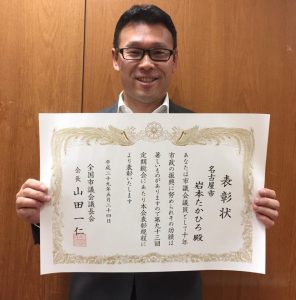 表彰状
名古屋市
岩本たかひろ 殿
あなたは市議会議員として十年
市政の振興に努められその功績は
著しいものがありますので第九十三回
定期総会にあたり本会表彰規程に
より表彰いたします
平成二十九年五月二十四日
全国市議会議長会
会長 山田一仁